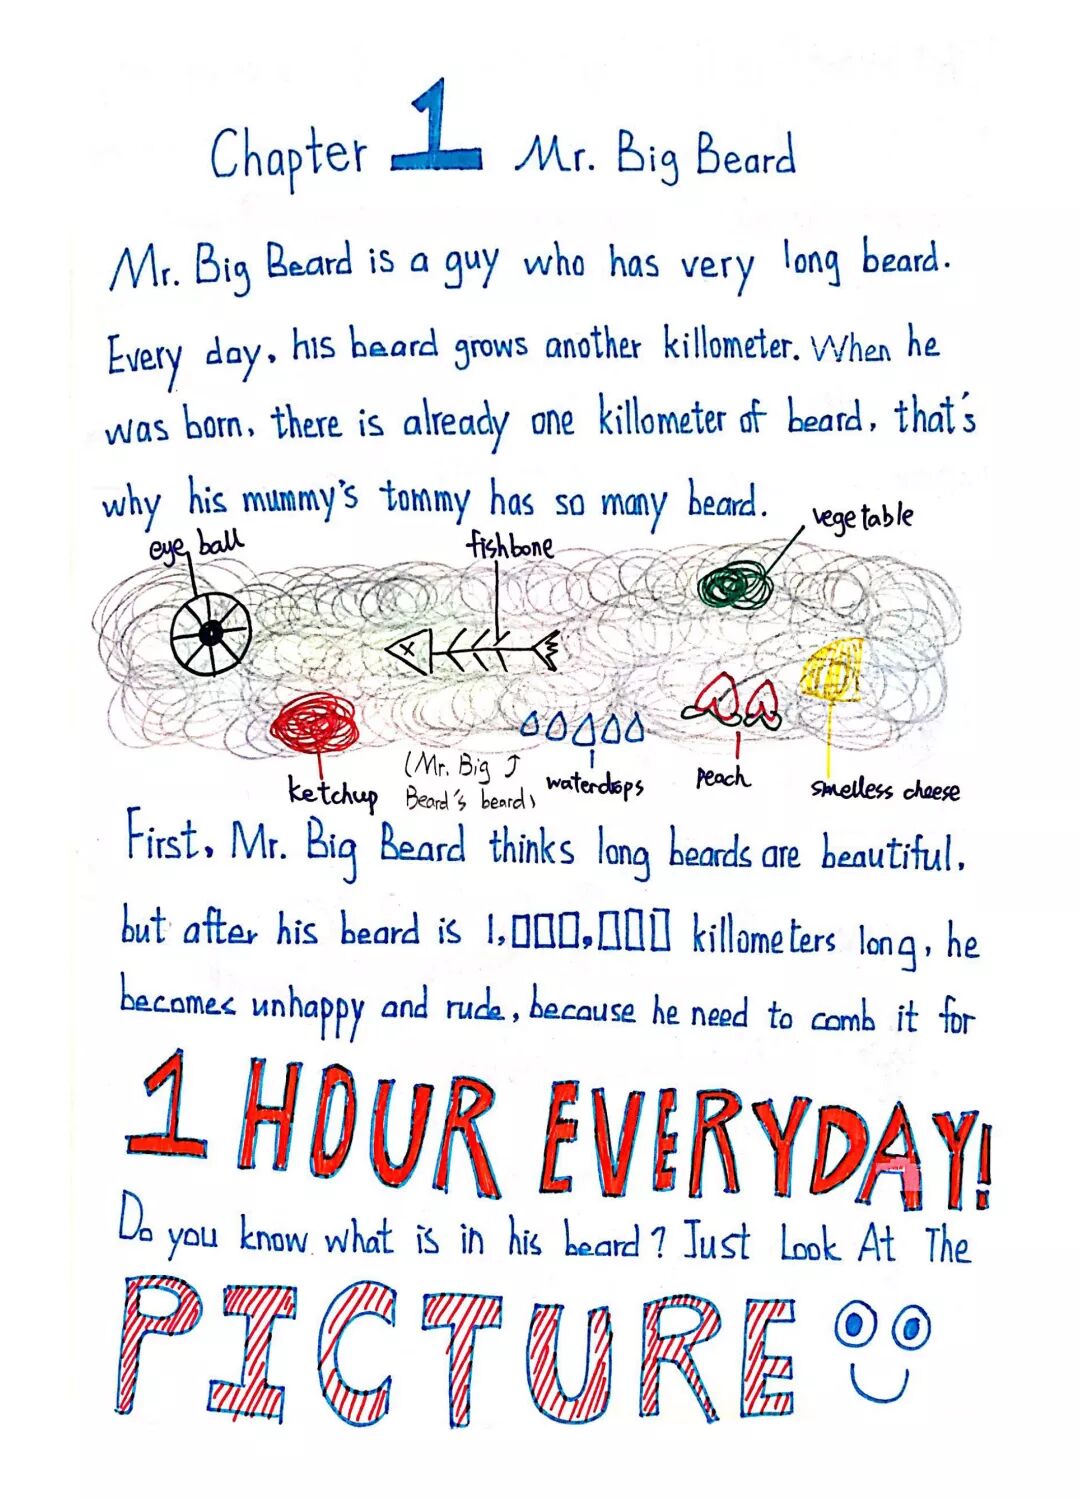 Chapter 1 Mr. Big Beard
Mr. Big Beard is a guy who has very long beard.
Every day, his beard grows another killometer. When he
was born, there is already one killometer of beard, that's
why his mummy's tommy has so many beard.
vegetable
eye ball
fishbone
ketchup
(Mr. Big
Beard's beard)
waterdrops
peach
smelless cheese
First, Mr. Big Beard thinks long beards are beautiful,
but after his beard is 1,000,000 killometers long, he
becomes unhappy and rude, because he need to comb it for
1 HOUR EVERYDAY!
Do you know what is in his beard? Just Look At The
PICTURE